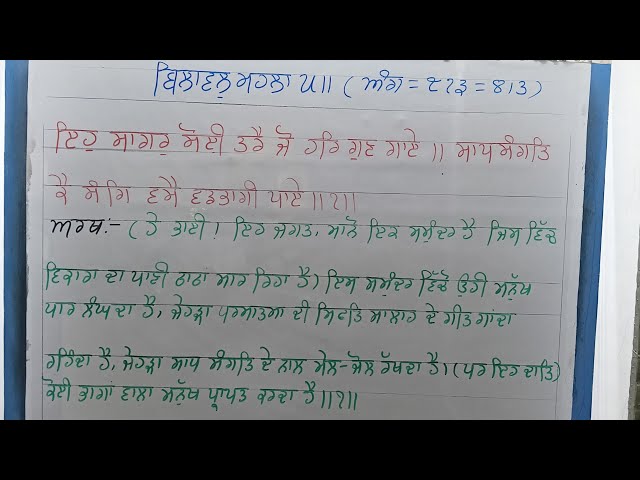 ਬਿਲਾਵਲੁ ਮਹਲਾ ੫॥ (ਅੰਗ = ੮੧੩ = 813)
ਇਹੁ ਸਾਗਰੁ ਸੋਈ ਤਰੈ ਜੋ ਹਰਿ ਗੁਣ ਗਾਏ ॥ ਸਾਧਸੰਗਤਿ
ਕੈ ਸੰਗਿ ਵਸੈ ਵਡਭਾਗੀ ਪਾਏ ॥੧॥
ਅਰਥ:- (ਹੇ ਭਾਈ! ਇਹ ਜਗਤ, ਮਾਨੋ ਇਕ ਸਮੁੰਦਰ ਹੈ ਜਿਸ ਵਿੱਚ
ਵਿਕਾਰਾ ਦਾ ਪਾਣੀ ਠਾਠਾਂ ਮਾਰ ਰਿਹਾ ਹੈ) ਇਸ ਸਮੁੰਦਰ ਵਿੱਚੋਂ ਉਹੀ ਮਨੁੱਖ
ਪਾਰ ਲੰਘਦਾ ਹੈ, ਜੇਹੜਾ ਪਰਮਾਤਮਾ ਦੀ ਸਿਫਤਿ ਸਾਲਾਹ ਦੇ ਗੀਤ ਗਾਂਦਾ
ਰਹਿੰਦਾ ਹੈ, ਜੇਹੜਾ ਸਾਧ ਸੰਗਤਿ ਦੇ ਨਾਲ ਮੇਲ-ਜੋਲ ਰੱਖਦਾ ਹੈ। (ਪਰ ਇਹ ਦਾਤਿ)
ਕੋਈ ਭਾਗਾਂ ਵਾਲਾ ਮਨੁੱਖ ਪ੍ਰਾਪਤ ਕਰਦਾ ਹੈ ॥੧॥